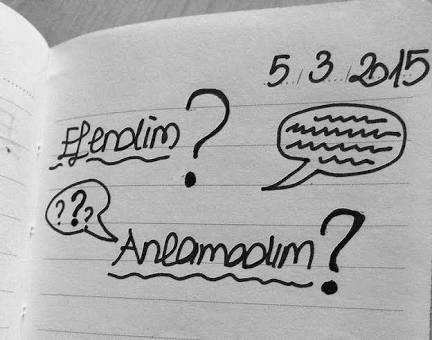 5/3/2015
Efendim?
???
Anlamadım?